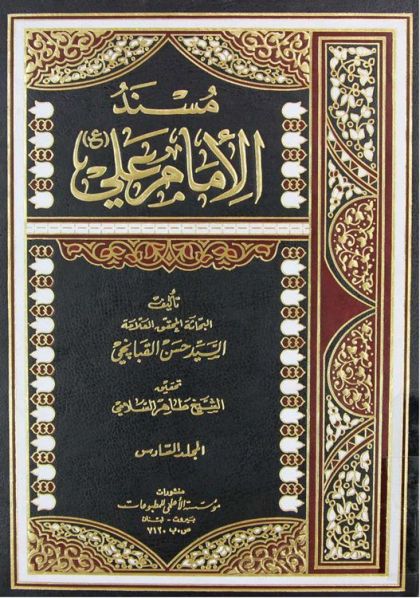 مُسْنَدُ
الإمام علي (ع)
تأليف
البحاثة المحقق العلامة
السيد حسن القبانچي
تحقيق
الشيخ طاهر السلامي
المجلد السادس
منشورات
مؤسسة الأعلمي للمطبوعات
بيروت - لبنان
ص.ب ٧١٢٠